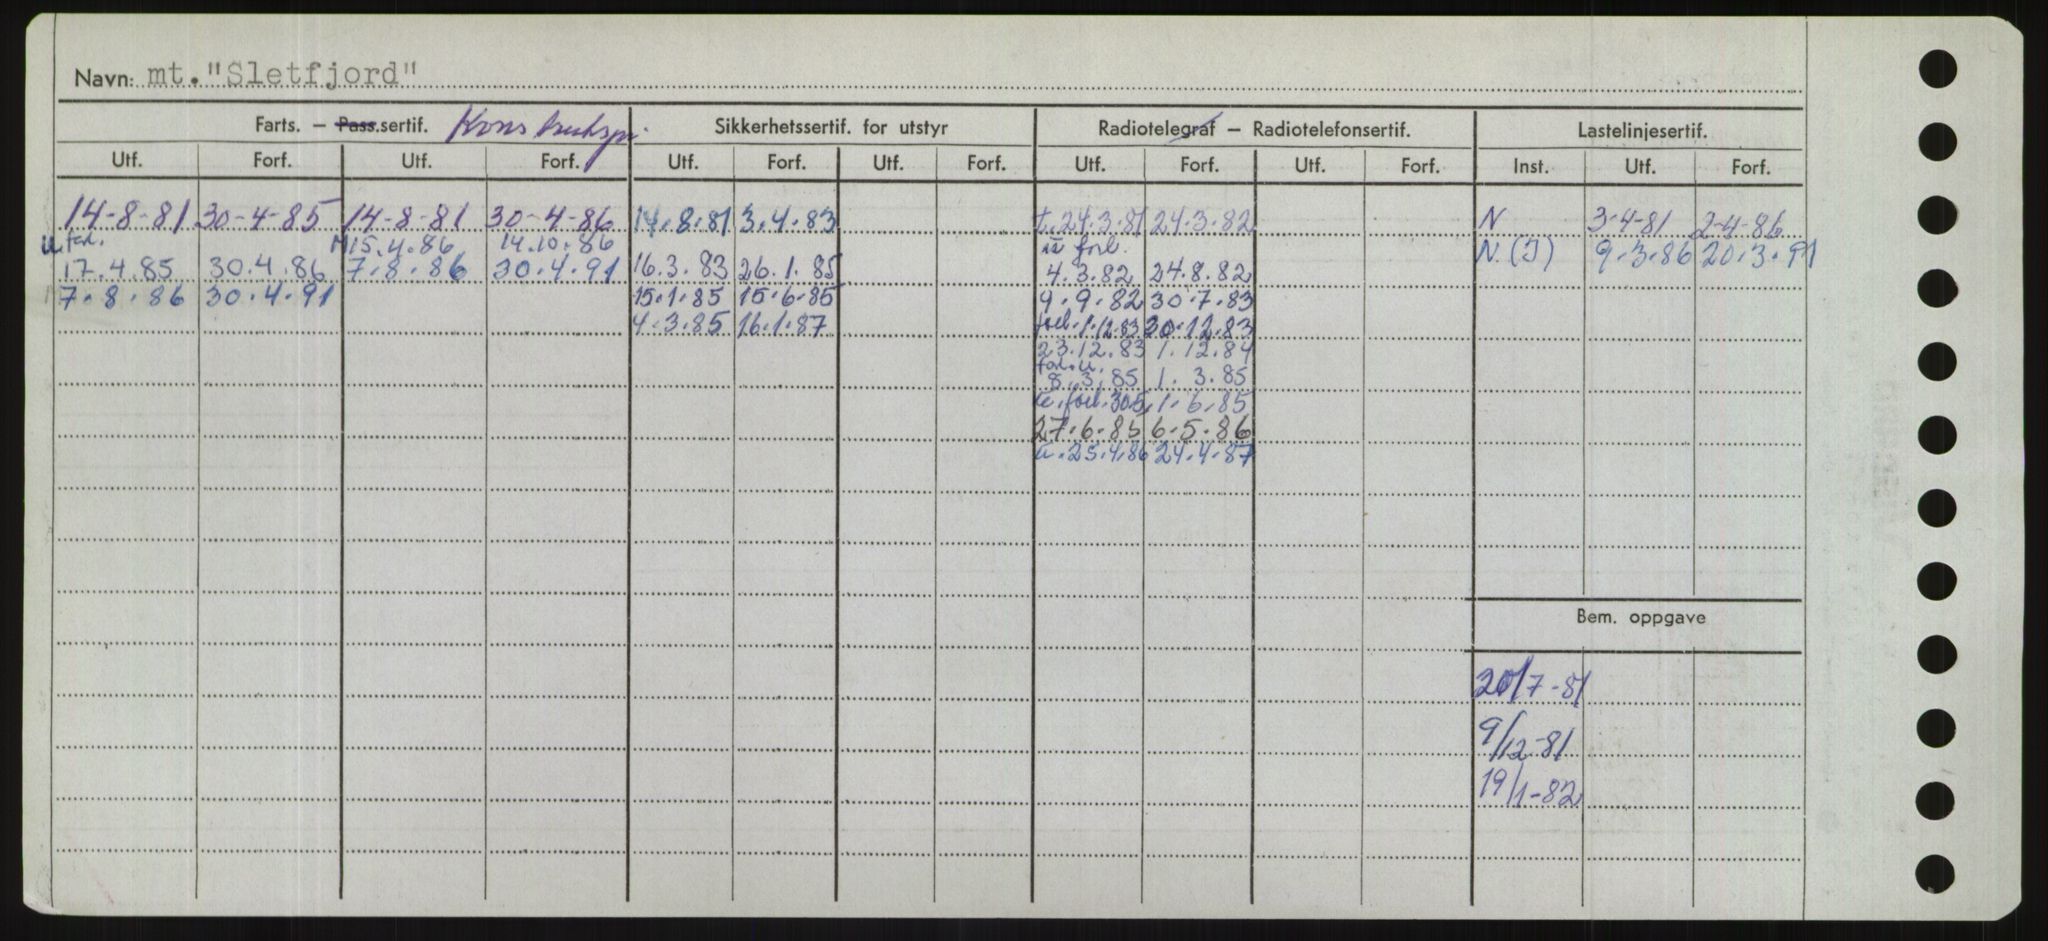 Navn: mt. "Sletfjord"
Farts. – Pass.sertif. Sikkerhetssertif. for utstyr Radiotelegraf – Radiotelefonsertif. Lastelinjesertif.
Utf. Forf. Utf. Forf. Utf. Forf. Utf. Forf. Utf. Forf. Utf. Forf. Inst. Utf. Forf.
14-8-81 30-4-85 14-8-81 30-4-86 14.8.81 3.4.83 t. 24.3.81 24.3.82 N 3-4-81 2-4-86
15.4.86 14.10.86 forl. N.(I) 9.3.86 20.3.91
17.4.85 30.4.86 7.8.86 30.4.91 16.3.83 26.1.85 4.3.82 24.8.82
7.8.86 30.4.91 15.1.85 15.6.85 9.9.82 30.7.83
4.3.85 16.1.87 forl. 1.12.83 30.12.83
23.12.83 1.12.84
8.3.85 1.3.85
forl. 30.5. 1.6.85
27.6.85 6.5.86
u. 25.4.86 24.4.87
Bem. oppgave
20/7-81
9/12-81
19/1-82